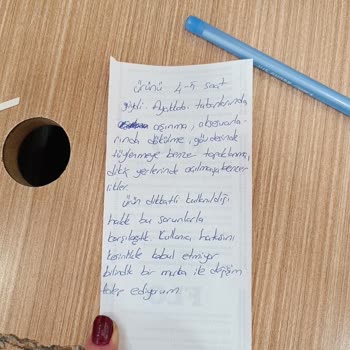 ürünü 4-5 saat
giydi. Ayakkabı tabanlarında
aşınma, aksesuarla-
rında dökülme, gövdesinde
tüylenmeye benzer topaklanma,
dikiş yerlerinde açılmaya benzer
ürün dikkatli kullanıldığı
halde bu sorunlarla
karşılaştık. Kullanıcı hatasını
kesinlikle kabul etmiyor
bilindik bir marka ile değişim
talep ediyorum